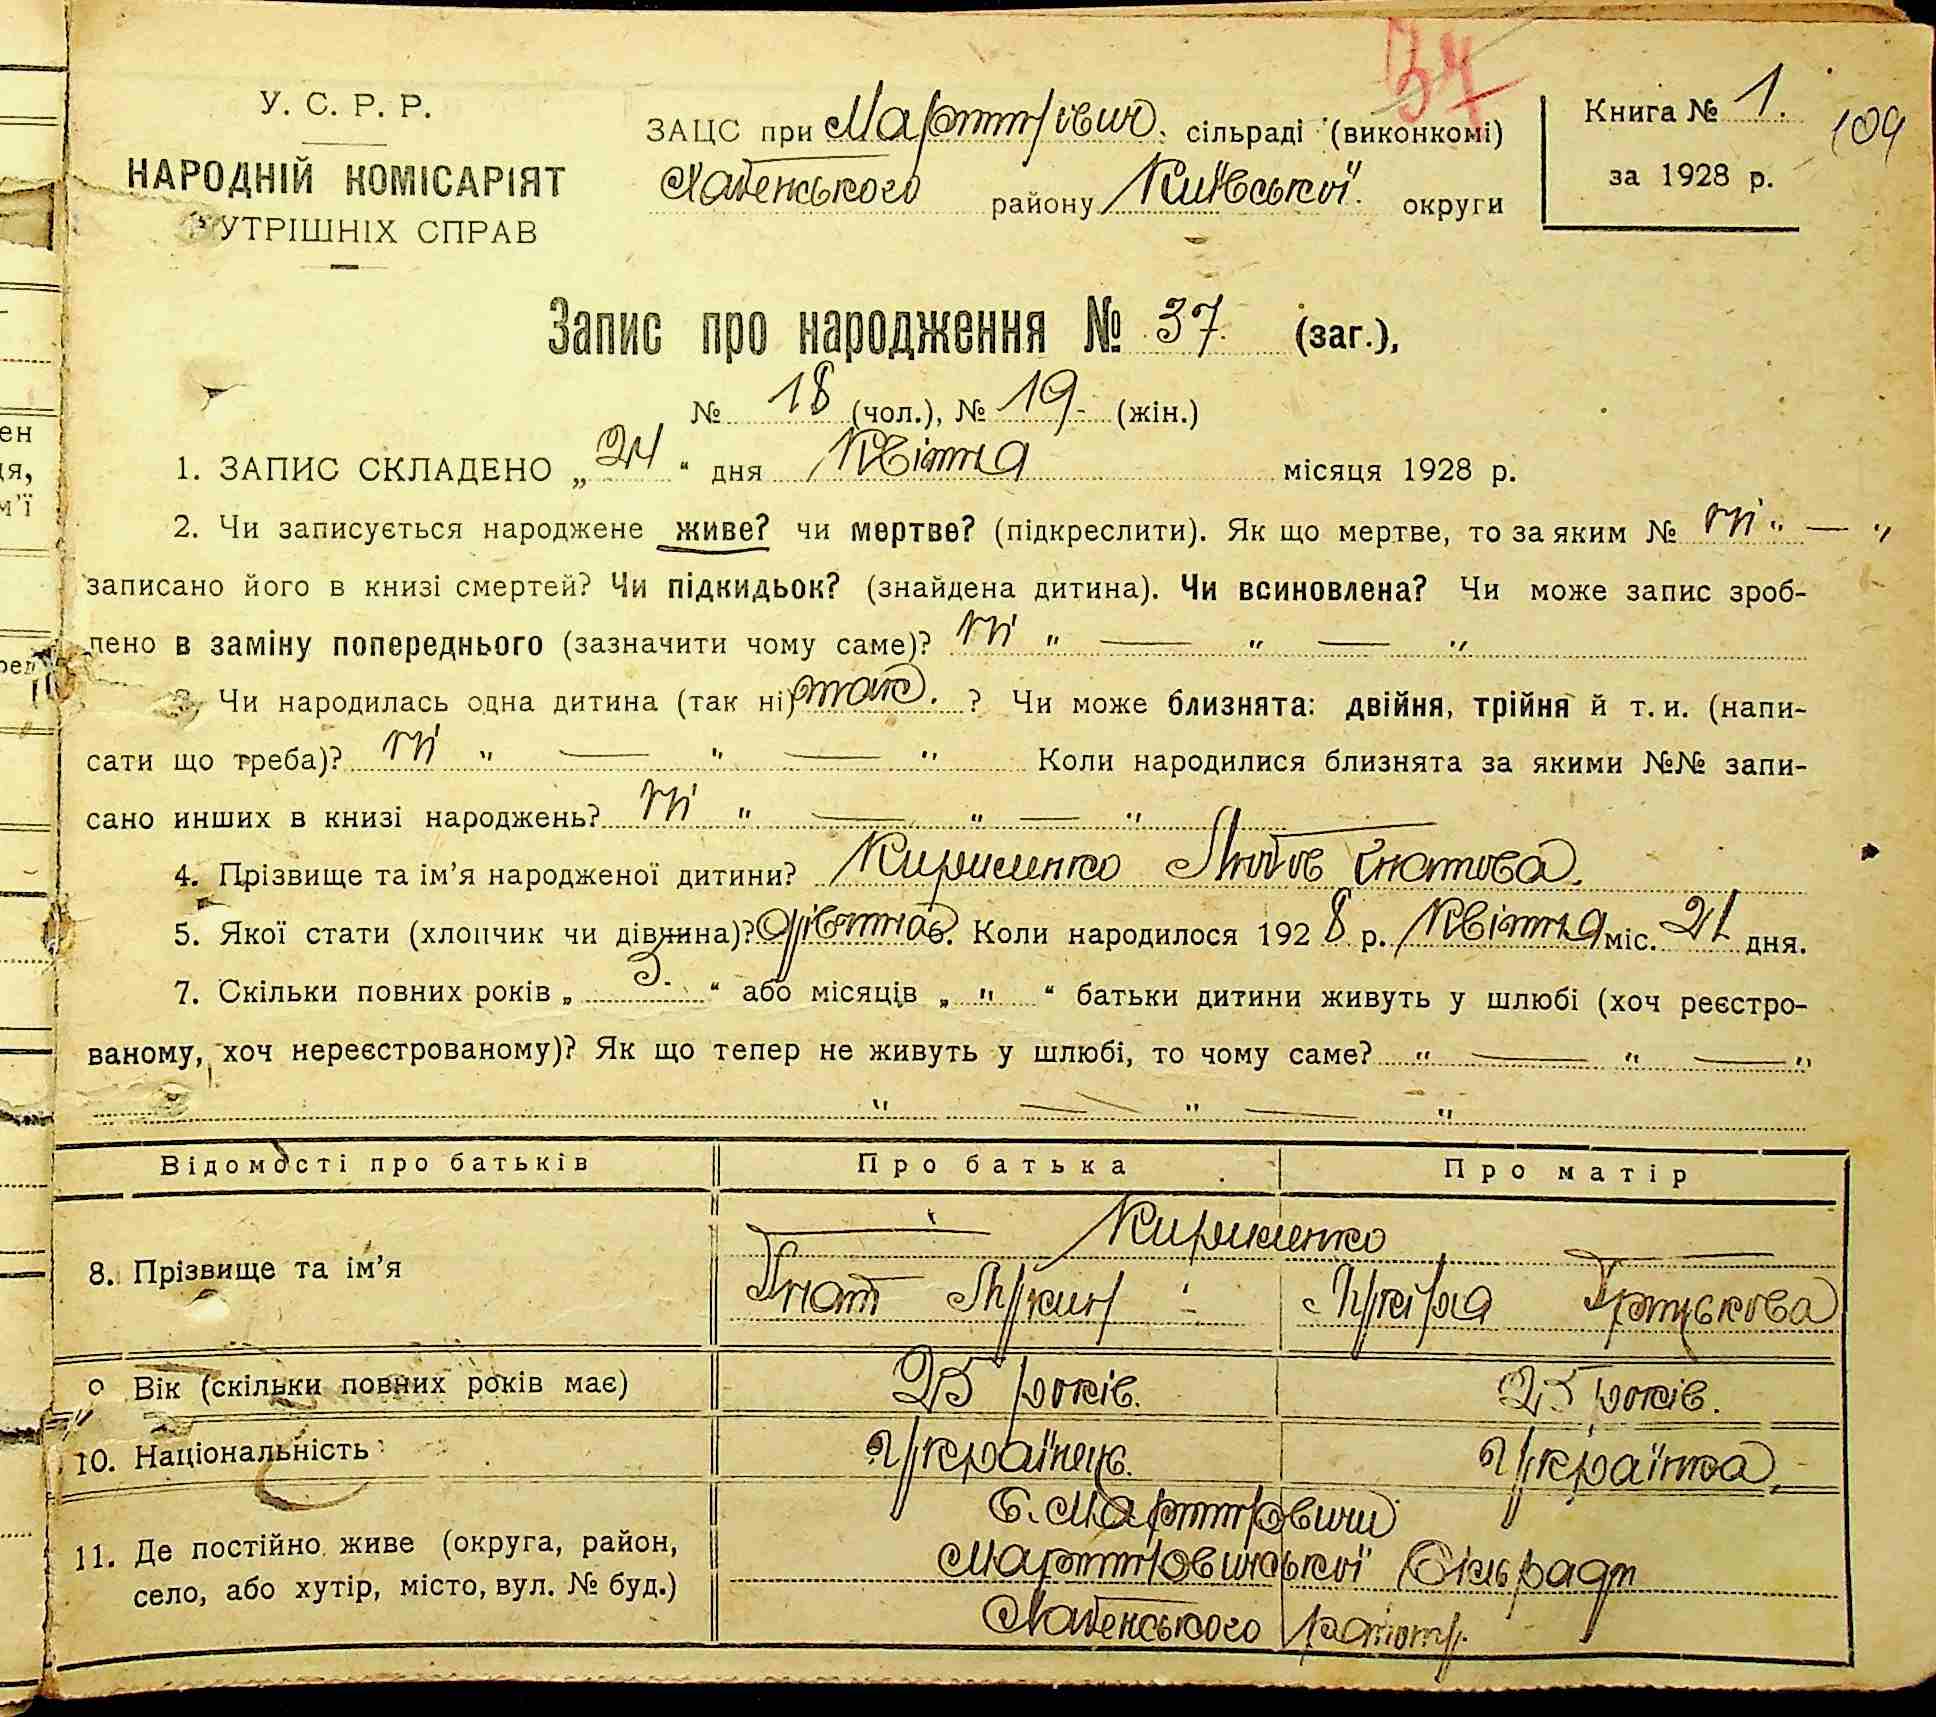 37
У. С. Р. Р.
НАРОДНІЙ КОМІСАРІЯТ
УТРІШНІХ СПРАВ
ЗАЦС при Мартинович. сільраді (виконкомі)
Хабенського району Київської округи
Книга № 1.
за 1928 р.
109
Запис про народження № 37 (заг.),
№ 18 (чол.), № 19 (жін.)
1. ЗАПИС СКЛАДЕНО „24“ дня Квітня місяця 1928 р.
2. Чи записується народжене живе? чи мертве? (підкреслити). Як що мертве, то за яким № ні " — "
записано його в книзі смертей? Чи підкидьок? (знайдена дитина). Чи всиновлена? Чи може запис зроб-
лено в заміну попереднього (зазначити чому саме)? ні " — " — "
3. Чи народилась одна дитина (так ні) так. ? Чи може близнята: двійня, трійня й т. и. (напи-
сати що треба)? ні " — " — " Коли народилися близнята за якими №№ запи-
сано инших в книзі народжень? ні " — " — "
4. Прізвище та ім’я народженої дитини? Кириленко Любов Гнатова.
5. Якої стати (хлопчик чи дівчина)? дівчина 6. Коли народилося 1928 р. Квітня міс. 21 дня.
7. Скільки повних років „ 3. “ або місяців „ " “ батьки дитини живуть у шлюбі (хоч реєстро-
ваному, хоч нереєстрованому)? Як що тепер не живуть у шлюбі, то чому саме? " — " — "
" — " — "
Відомості про батьків Про батька Про матір
8. Прізвище та ім’я Кириленко
Гнат Лукин Луківя Грицькова
Вік (скільки повних років має) 25 років. 25 років.
10. Національність Українець. Українка
11. Де постійно живе (округа, район,
село, або хутір, місто, вул. № буд.)
с. Мартиновичи
Мартиновицької Сільради
Хабенського району.
ен
ця,
м’ї